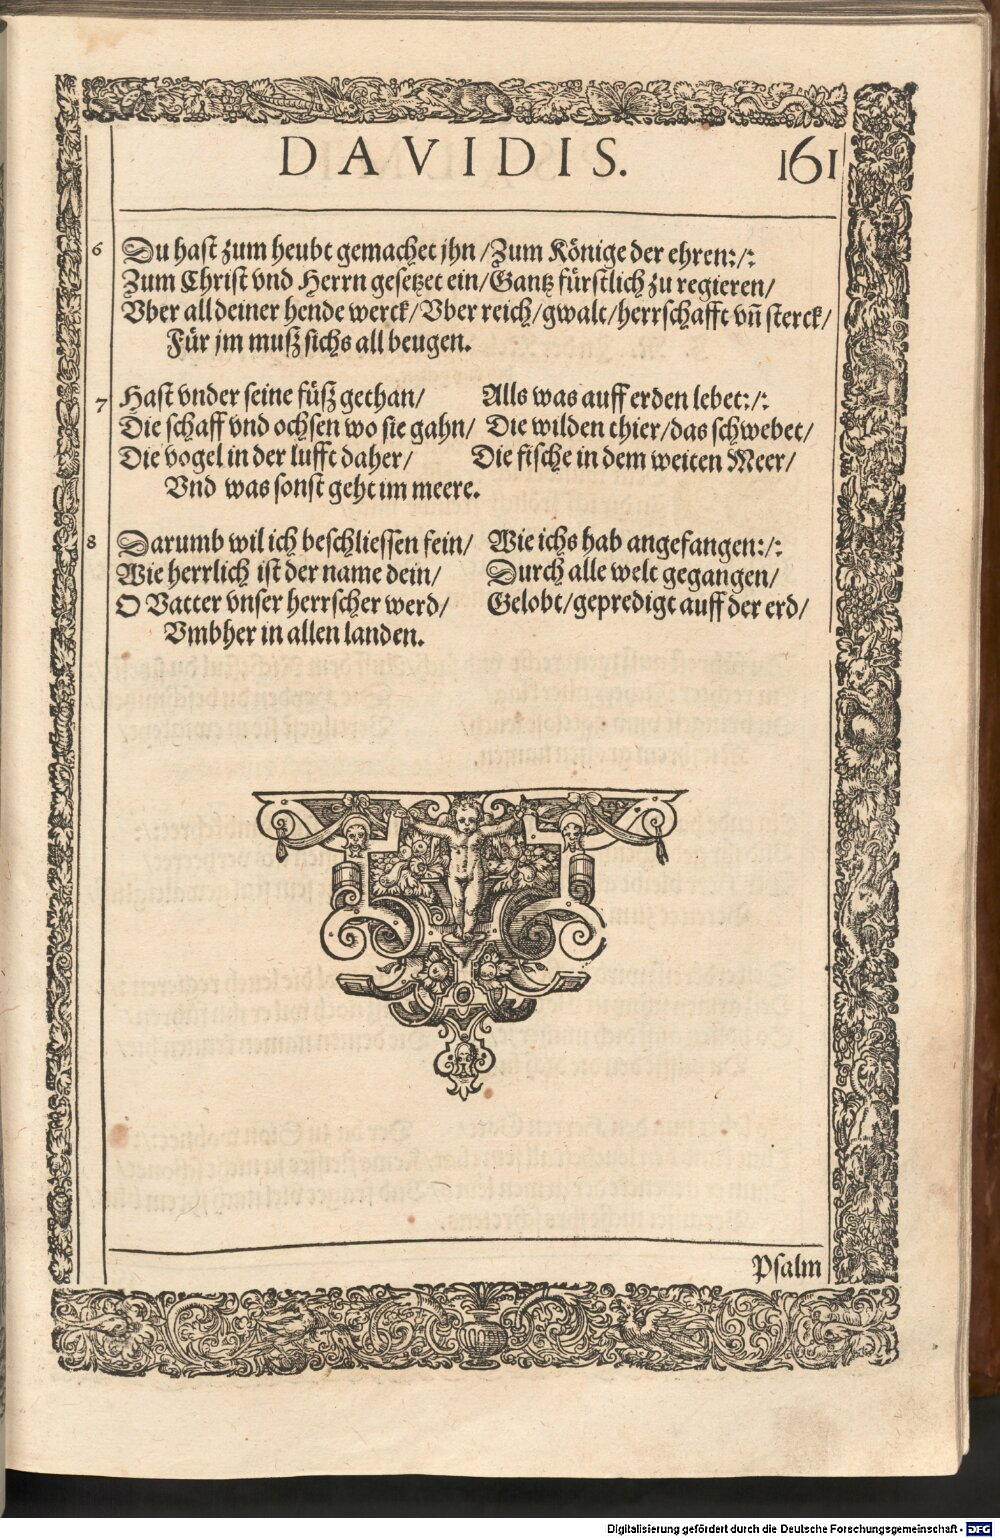 DAVIDIS. 161
6 Du hast zum heubt gemachet jhn / Zum Könige der ehren:/:
Zum Christ vnd Herrn gesetzet ein / Gantz fürstlich zu regieren /
Vber all deiner hende werck / Vber reich / gwalt / herrschafft vñ sterck /
Für jm muß sichs all beugen.
7 Hast vnder seine füß gethan / Alls was auff erden lebet:/:
Die schaff vnd ochsen wo sie gahn / Die wilden thier / das schwebet /
Die vogel in der lufft daher / Die fische in dem weiten Meer /
Vnd was sonst geht im meere.
8 Darumb wil ich beschliessen fein / Wie ichs hab angefangen:/:
Wie herrlich ist der name dein / Durch alle welt gegangen /
O Vatter vnser herrscher werd / Gelobt / gepredigt auff der erd /
Vmbher in allen landen.
Psalm
Digitalisierung gefördert durch die Deutsche Forschungsgemeinschaft - DFG